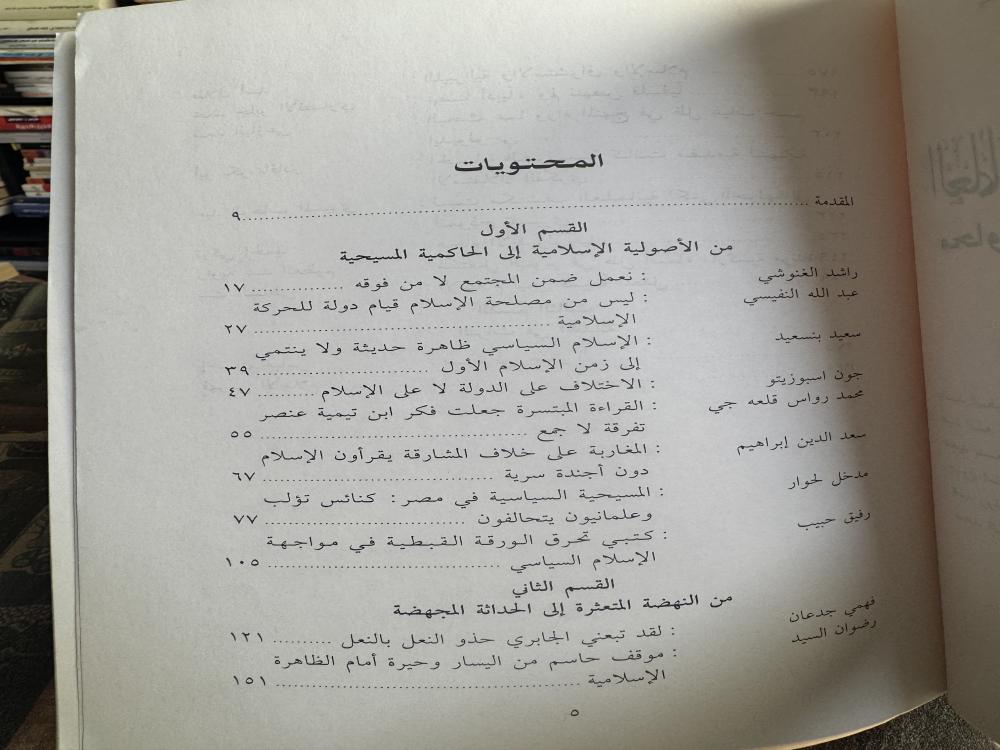 المحتويات
المقدمة ........ ٩
القسم الأول
من الأصولية الإسلامية إلى الحاكمية المسيحية
راشد الغنوشي : نعمل ضمن المجتمع لا من فوقه ........ ١٧
عبد الله النفيسي : ليس من مصلحة الإسلام قيام دولة للحركة
الإسلامية ........ ٢٧
سعيد بنسعيد : الإسلام السياسي ظاهرة حديثة ولا ينتمي
إلى زمن الإسلام الأول ........ ٣٩
جون اسبوزيتو : الاختلاف على الدولة لا على الإسلام ........ ٤٧
محمد رواس قلعه جي : القراءة المبتسرة جعلت فكر ابن تيمية عنصر
تفرقة لا جمع ........ ٥٥
سعد الدين إبراهيم : المغاربة على خلاف المشارقة يقرأون الإسلام
دون أجندة سرية ........ ٦٧
مدخل لحوار : المسيحية السياسية في مصر: كنائس تؤلب
وعلمانيون يتحالفون ........ ٧٧
رفيق حبيب : كتبي تحرق الورقة القبطية في مواجهة
الإسلام السياسي ........ ١٠٥
القسم الثاني
من النهضة المتعثرة إلى الحداثة المجهضة
فهمي جدعان : لقد تبعني الجابري حذو النعل بالنعل ........ ١٢١
رضوان السيد : موقف حاسم من اليسار وحيرة أمام الظاهرة
الإسلامية ........ ١٥١
٥